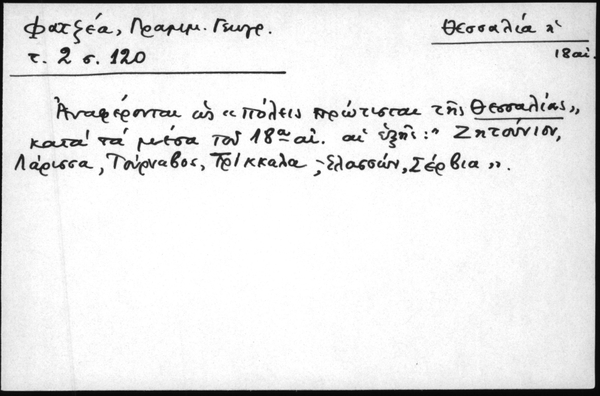 Φατζέα, Γραμμ. Γεωγρ.
τ. 2 σ. 120
Θεσσαλία
18 αἰ.
Ἀναφέρονται ὡς «πόλεις πρώτισται τῆς Θεσσαλίας»
κατά τά μέσα τοῦ 18ου αἰ. αἱ ἑξῆς: "Ζητούνιον,
Λάρισσα, Τούρναβος, Τρίκκαλα, Ἐλασσών, Σέρβια».